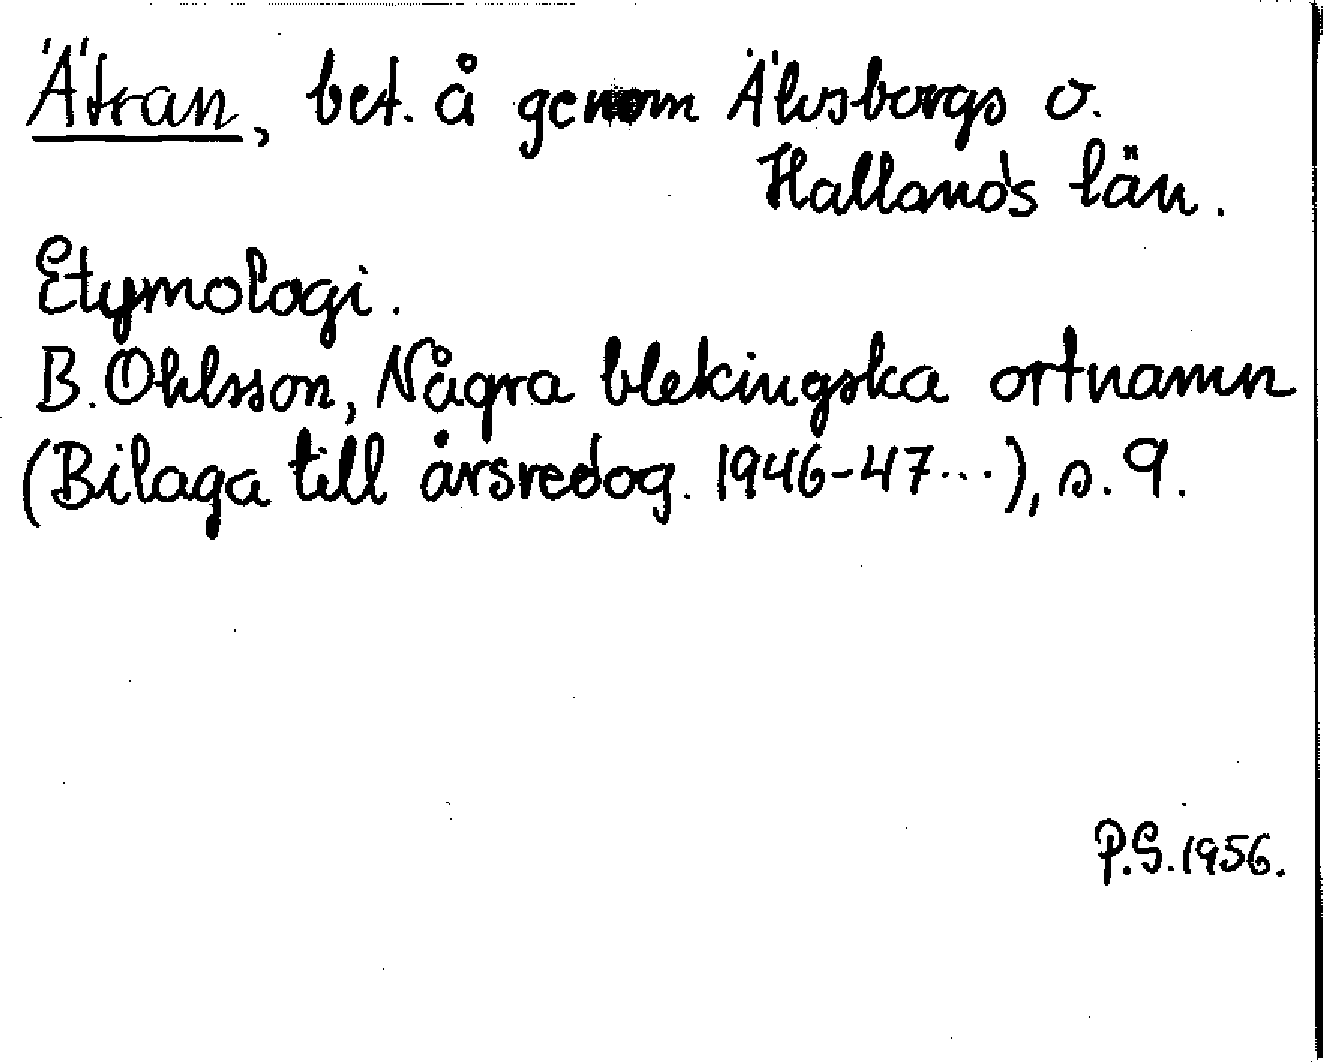 Ätran, bet. å genom Älvsborgs o.
Hallands län.
Etymologi.
B. Ohlsson, Några blekingska ortnamn
(Bilaga till årsredog. 1946-47...), s. 9.
P.S. 1956.